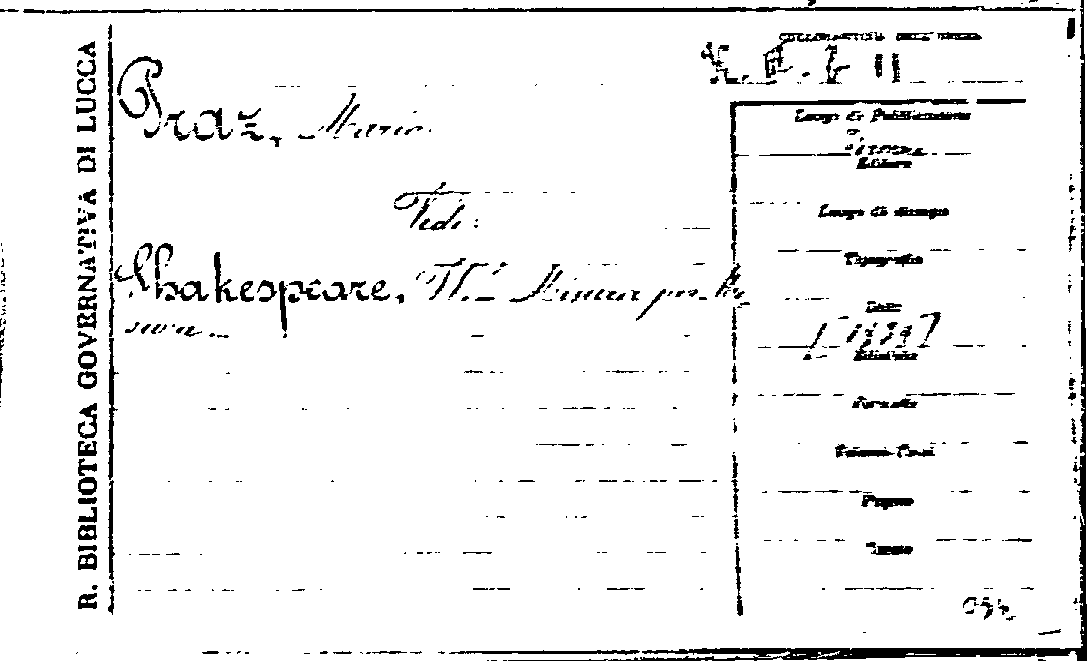 R. BIBLIOTECA GOVERNATIVA DI LUCCA
COLLOCAZIONE DELL'OPERA
Praz, Mario
Vedi:
Shakespeare, W. - Misura per mi
sura
Luogo di Pubblicazione
Firenze
Editore
Luogo di stampa
Tipografia
Data
[1939]
Edizione
Formato
Volumi-Tomi
Pagine
Tavole